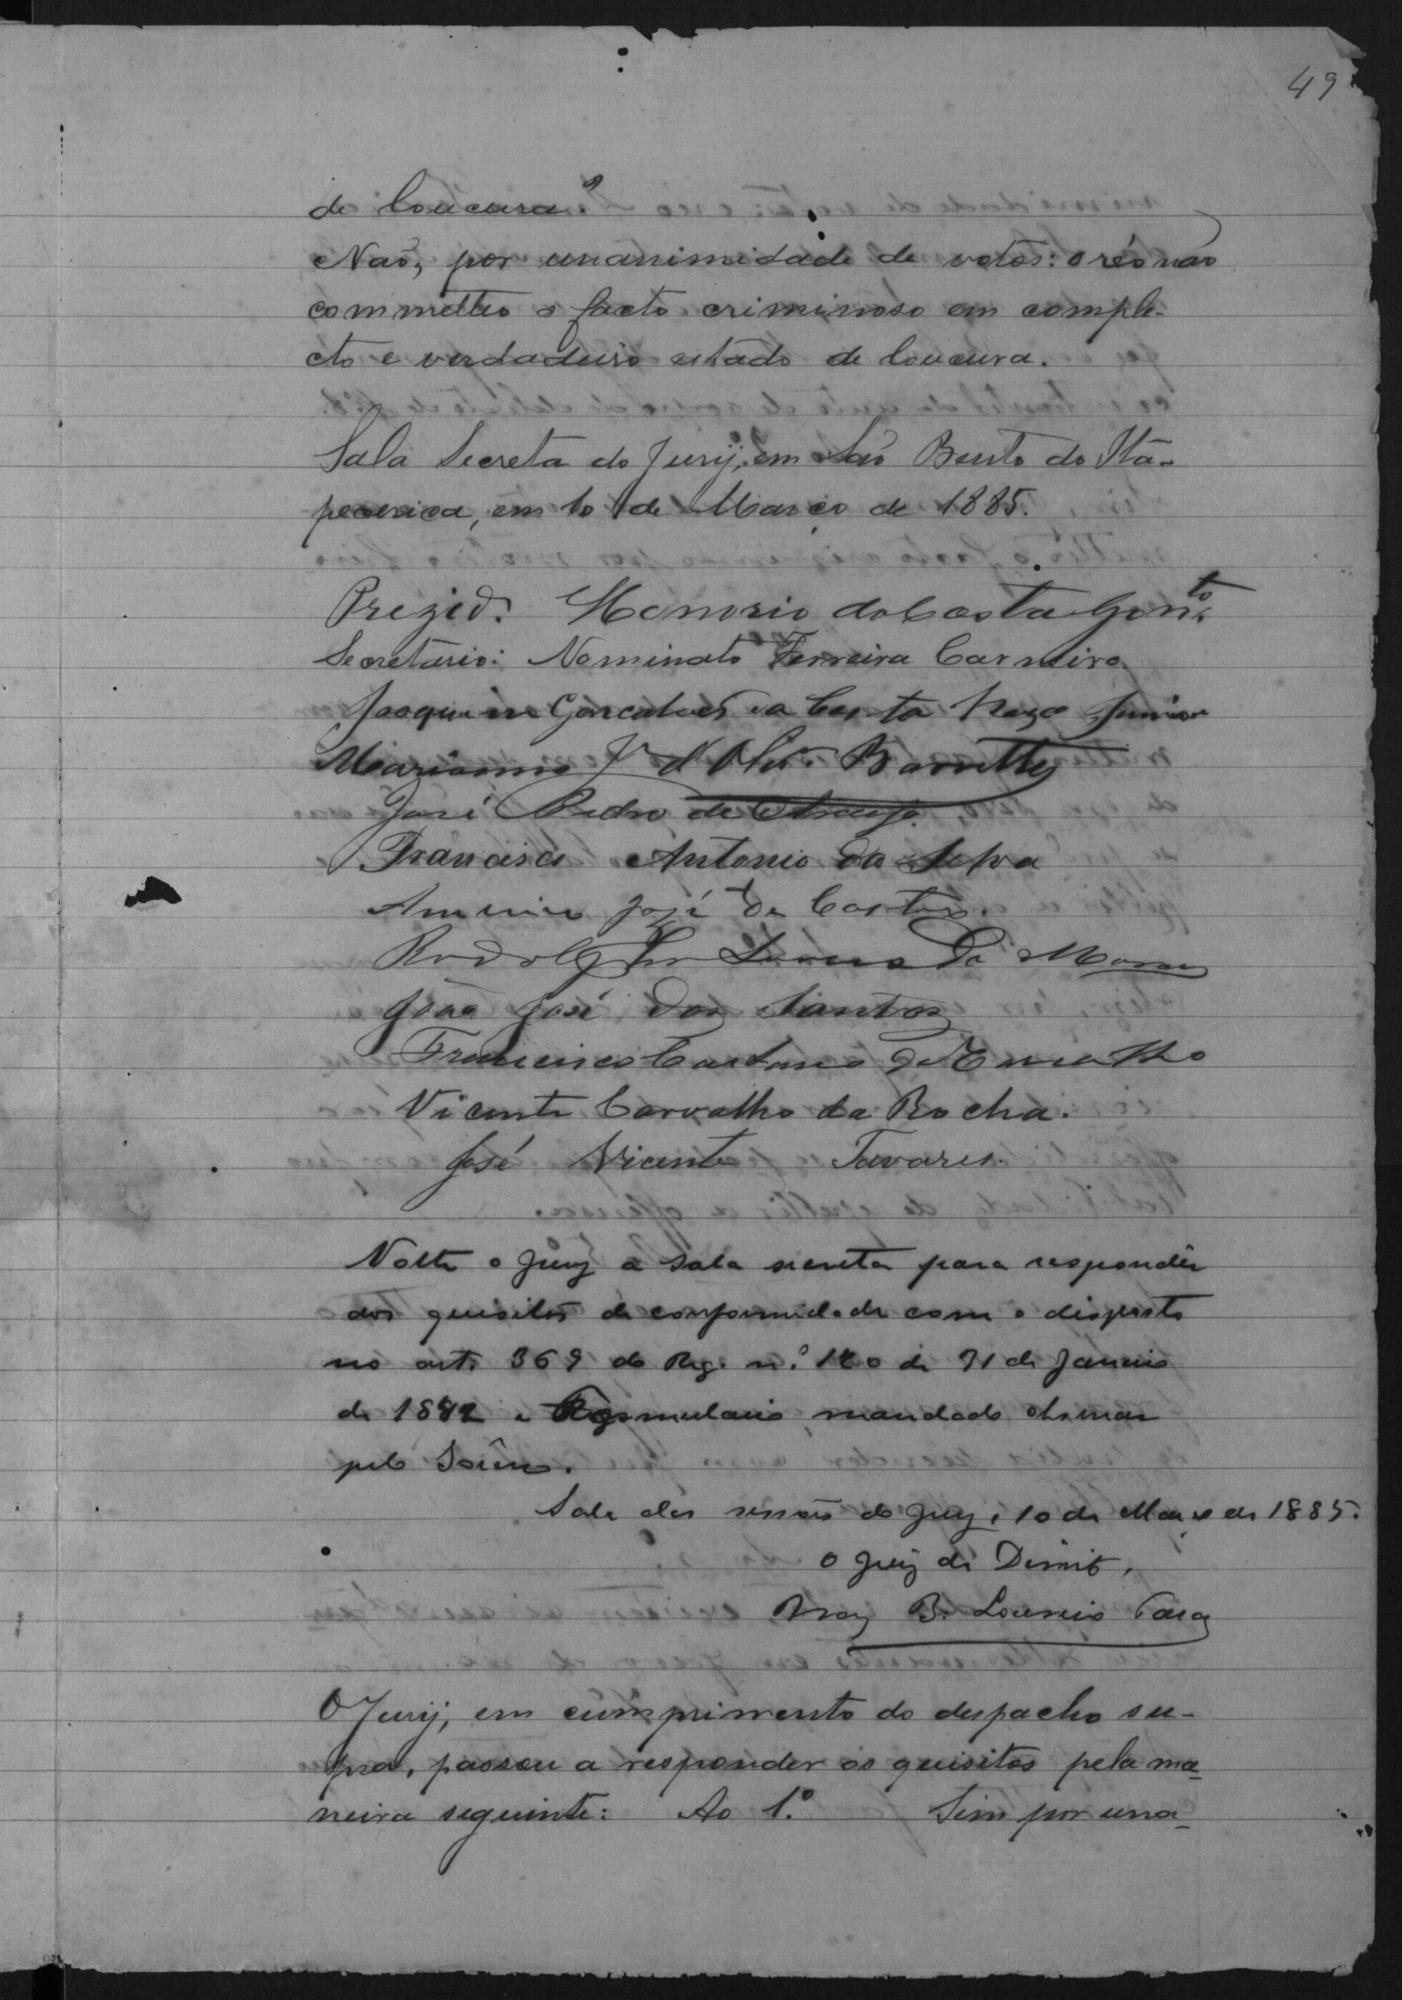 49
de loucura?
Não, por unanimidade de votos: o réo não
commetteo o facto criminoso em comple-
cto e verdadeiro estado de loucura.
Sala Secreta do Jury, em São Bento do Ita-
pecerica, em 10 de Março de 1885.
Prezid. Honorio da Costa
Secretario: Nominato Ferreira Carneiro
Joaquim Gonçalves da Costa Junior
Marianno
José Pedro de Araujo
Francisco Antonio da Silva
Americo José de Castro.
Rodolpho de
João José dos Santos
Francisco de Carvalho
Vicente Carvalho da Rocha.
José Vicente Tavares.
Volte o Jury a sala secreta para responder
aos quisitos de conformidade com o disposto
no art. 369 do Reg. n.º 120 de 31 de Janeiro
de 1842 e Formulario, mandado observar
pelo
Sala das sessões do Jury, 10 de Março de 1885.
O Juiz de Direito,
Braz B. Loureiro
O Jury, em cumprimento do despacho su-
pra, passou a responder os quisitos pela ma-
neira seguinte: Ao 1.º Sim por una-